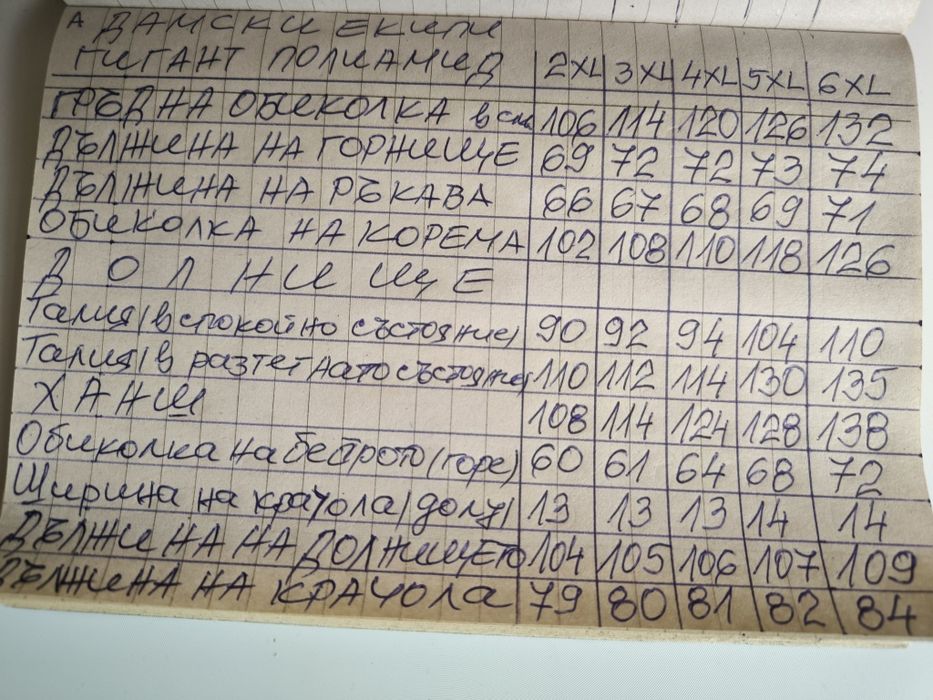 А ДАМСКИ ЕКИПИ
ГИГАНТ ПОЛИАМИД 2XL 3XL 4XL 5XL 6XL
ГРЪДНА ОБИКОЛКА в см 106 114 120 126 132
ДЪЛЖИНА НА ГОРНИЩЕ 69 72 72 73 74
ДЪЛЖИНА НА РЪКАВА 66 67 68 69 71
ОБИКОЛКА НА КОРЕМА 102 108 110 118 126
ДОЛНИЩЕ
Талия (в спокойно състояние) 90 92 94 104 110
Талия (в разтегнато състояние) 110 112 114 130 135
ХАНШ 108 114 124 128 138
Обиколка на бедрото (горе) 60 61 64 68 72
Ширина на крачола (долу) 13 13 13 14 14
ДЪЛЖИНА НА ДОЛНИЩЕТО 104 105 106 107 109
ДЪЛЖИНА НА КРАЧОЛА 79 80 81 82 84